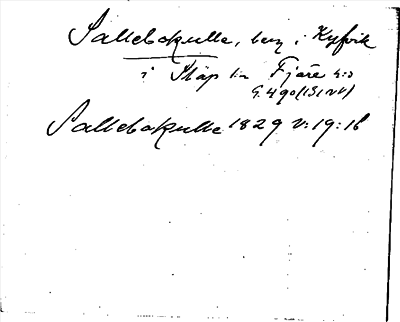 Sallebakulle, berg i Kyfvik
i Släp sn Fjäre h:d
G. 490 (13 1 NV)
Sallebakulle 1829 V:19:16